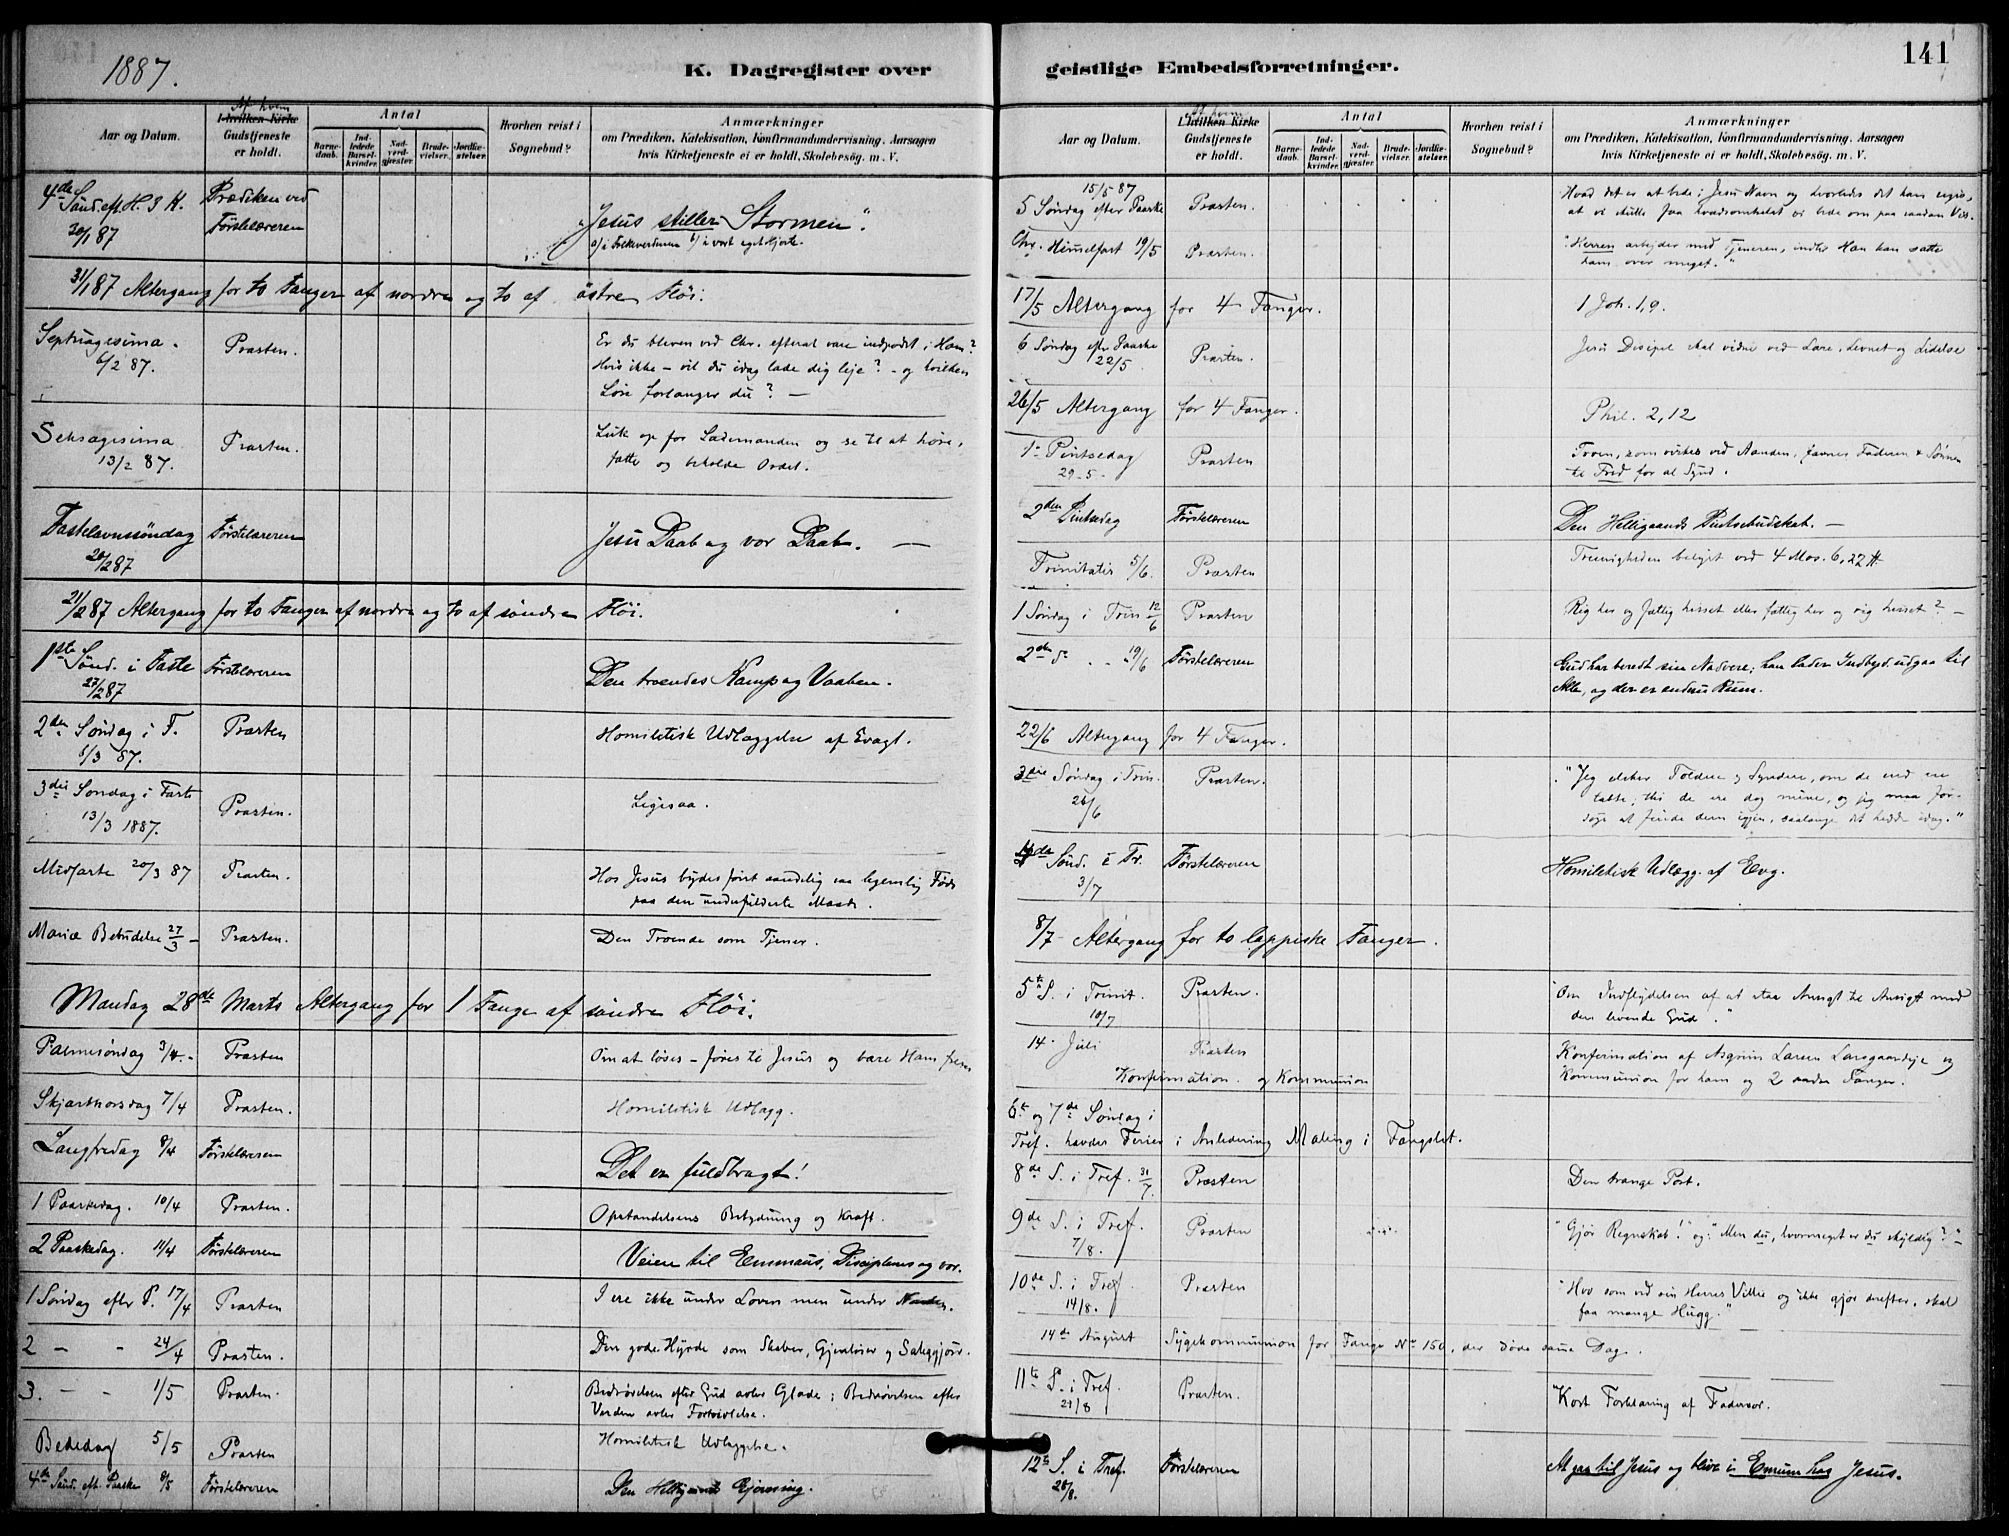 1887.
K. Dagregister over
Af hvem
Aar og Datum.
I hvilken Kirke
Gudstjeneste
er holdt.
Antal
Barne-
daab.
Ind-
ledede
Barsel-
kvinder.
Nad-
verd-
gjester.
Brude-
vielser.
Jordfæ-
stelser.
Hvorhen reist i
Sognebud?
Anmærkninger
om Prædiken, Katekisation, Konfirmandundervisning, Aarsagen
hvis Kirketjeneste ei er holdt, Skolebesög. m. V.
4de Sönd. eft. H. 3 K. Prædiken ved
30/1 87 Förstelæreren
"Jesus stiller Stormen".
a) i Folkeverdenen b) i vort eget Hjerte.
31/1 87 Altergang for to Fanger af nordre og to af östre Flöi.
Septuagesima. 6/2 87. Præsten.
Er du bleven ved Chr. efterat være indpodet i Ham?
Hvis ikke – vil du idag lade dig leje? – og hvilken
Løn forlanger du? –
Seksagesima 13/2 87. Præsten.
Luk op for Sædemanden og se til at høre,
fatte og beholde Ordet.
Fastelavnssöndag 20/2 87 Förstelæreren
Jesu Daab og vor Daab. —
21/2 87 Altergang for to Fanger af nordre og to af söndre Flöi.
1ste Sönd. i Faste 27/2 87 Förstelæreren
Den troendes Kamp og Vaaben.
2den Søndag i F. 6/3 87. Præsten
Homiletisk Udlæggelse af Evagl.
3die Søndag i Faste 13/3 1887. Præsten.
Ligesaa.
Midfaste 20/3 87 Præsten.
Hos Jesus bydes først aandelig saa legemlig Føde
paa den underfuldeste Maade.
Mariæ Bebudelse 27/3 – Præsten.
Den Troende som Tjener.
Mandag 28de Marts Altergang for 1 Fange af söndre Flöi.
Palmesøndag 3/4 – Præsten
Om at løses – føres til Jesus og bære Ham frem
Skjærthorsdag 7/4 Præsten.
Homiletisk Udlægg.
Langfredag 8/4 Förstelæreren
Det er fuldbragt!
1 Paaskedag. 10/4 Præsten.
Opstandelsens Betydning og Kraft.
2 Paaskedag. 11/4 Förstelæreren
Veien til Emmaus, Disciplenes og vor.
1 Søndag efter P. 17/4 Præsten
I ere ikke under Loven men under Naaden.
2 – – 24/4 Præsten.
Den gode Hyrde som Skaber, Gjenløser og Saliggjører.
3. – – 1/5 Præsten.
Bedrøvelsen efter Gud avler Glæde; Bedrøvelsen efter
Verden avler Fortvivlelse.
Bededag 5/5 Præsten
Homiletisk Udlæggelse.
4de Sönd. eft. Paaske 8/5 Förstelæreren
Den Helligaands Gjerning.
geistlige Embedsforretninger.
141
Af hvem
Aar og Datum.
I hvilken Kirke
Gudstjeneste
er holdt.
Antal
Barne-
daab.
Ind-
ledede
Barsel-
kvinder.
Nad-
verd-
gjester.
Brude-
vielser.
Jordfæ-
stelser.
Hvorhen reist i
Sognebud?
Anmærkninger
om Prædiken, Katekisation, Konfirmandundervisning, Aarsagen
hvis Kirketjeneste ei er holdt, Skolebesög. m. V.
15/5 87
5 Søndag efter Paaske Præsten.
Hvad det er at bede i Jesu Navn og hvorledes det kan siges,
at vi skulle faa hvadsomhelst vi bede om paa saadan Vis.
Chr. Himmelfart 19/5 Præsten.
"Herren arbejder med Tjeneren, indtil Han kan sætte
ham over meget."
17/5 Altergang for 4 Fanger.
1 Joh. 1,9.
6 Søndag efter Paaske 22/5 Præsten.
Jesu Discipel skal vidne ved Lære, Levnet og Lidelse
26/5 Altergang for 4 Fanger.
Phil. 2,12
1ste Pintsedag 29-5. Præsten
Troen, som virkes ved Aanden, favner Faderen & Sønnen
til Fred for al Synd.
2den Pintsedag Förstelæreren
Den Helligaands Pintsebudskab. —
Trinitatis 5/6. Præsten
Treenigheden belyst ved 4 Mos. 6,22 ff.
1 Søndag i Trin 12/6 Præsten
Rig her og fattig hisset eller fattig her og rig hisset? –
2den S. . . 19/6 Förstelæreren
Gud har beredt sin Nadvere; han lader Indbyd. udgaa til
Alle, og der er endnu Rum.
22/6 Altergang for 4 Fanger.
3die Søndag i Trin. 26/6 Præsten.
"Jeg elsker Toldere og Syndere, om de end ere
tabte; thi de ere dog mine, og jeg maa for-
søge at finde dem igjen, saalænge det hedder idag."
4de Sönd. i Tr. 3/7 Förstelæreren
Homiletisk Udlægg. af Evg.
8/7 Altergang for to lappiske Fanger.
5te S. i Trinit. 10/7 Præsten.
"Om Indflydelsen af at staa Ansigt til Ansigt med
den levende Gud."
14. Juli Præsten
Konfirmation og Kommunion
Konfirmation af Asgrim Larsen Larsgaardeje og
Kommunion for ham og 2 andre Fanger.
6te og 7de Søndag i
Tref. havdes Ferier i Anledning Maling i Fængslet.
8de S. i Tref. 31/7. Præsten
Den trange Port.
9de S. i Tref. 7/8. Præsten
"Gjør Regnskab!" og: "Men du, hvormeget er du skyldig?"
10de S. i Tref. 14/8. Præsten
"Hvo som ved sin Herres Villie og ikke gjør derefter, skal
faa mange Hugg."
14de August Sygekommunion for Fange No 150, der døde samme Dag.
11te S. i Tref. 21/8 Præsten.
"Kort Forklaring af Fadervor.
12te S. i Tref. 28/8. Förstelæreren
At gaa til Jesus og blive i Enrum hos Jesus.